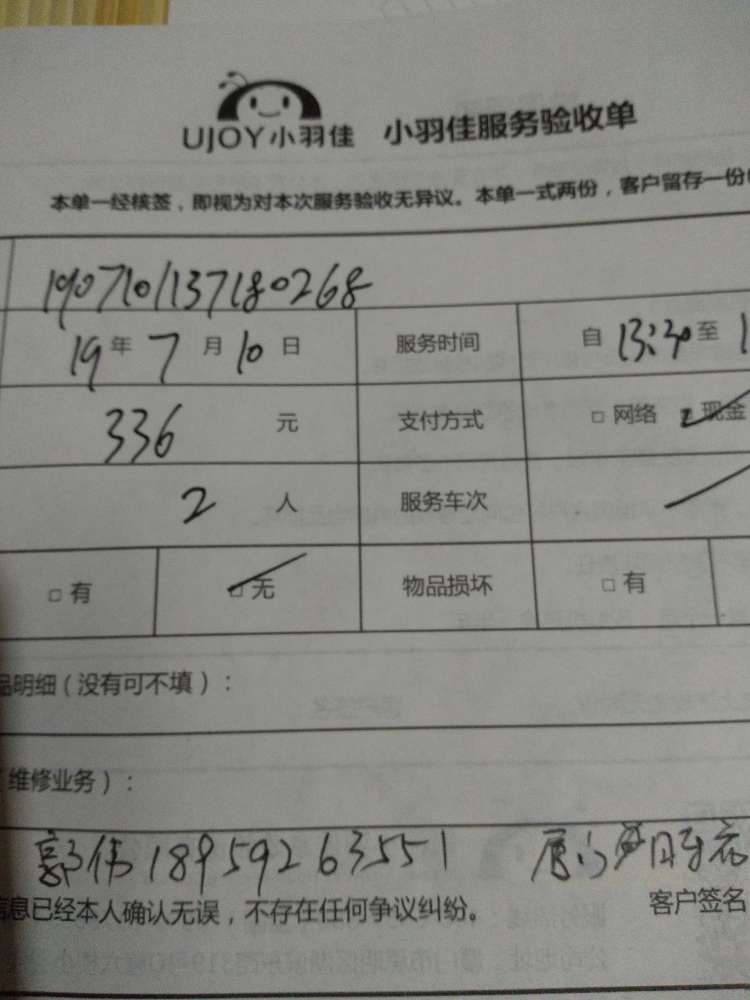 UJOY小羽佳 小羽佳服务验收单
本单一经核签，即视为对本次服务验收无异议。本单一式两份，客户留存一份
1907101137180268
19年7月10日 服务时间 自13:30至1
336元 支付方式 □网络 □现金
2人 服务车次
□有 □无 物品损坏 □有
品明细（没有可不填）：
（维修业务）：
郭伟18959263551 厦门
信息已经本人确认无误，不存在任何争议纠纷。 客户签名